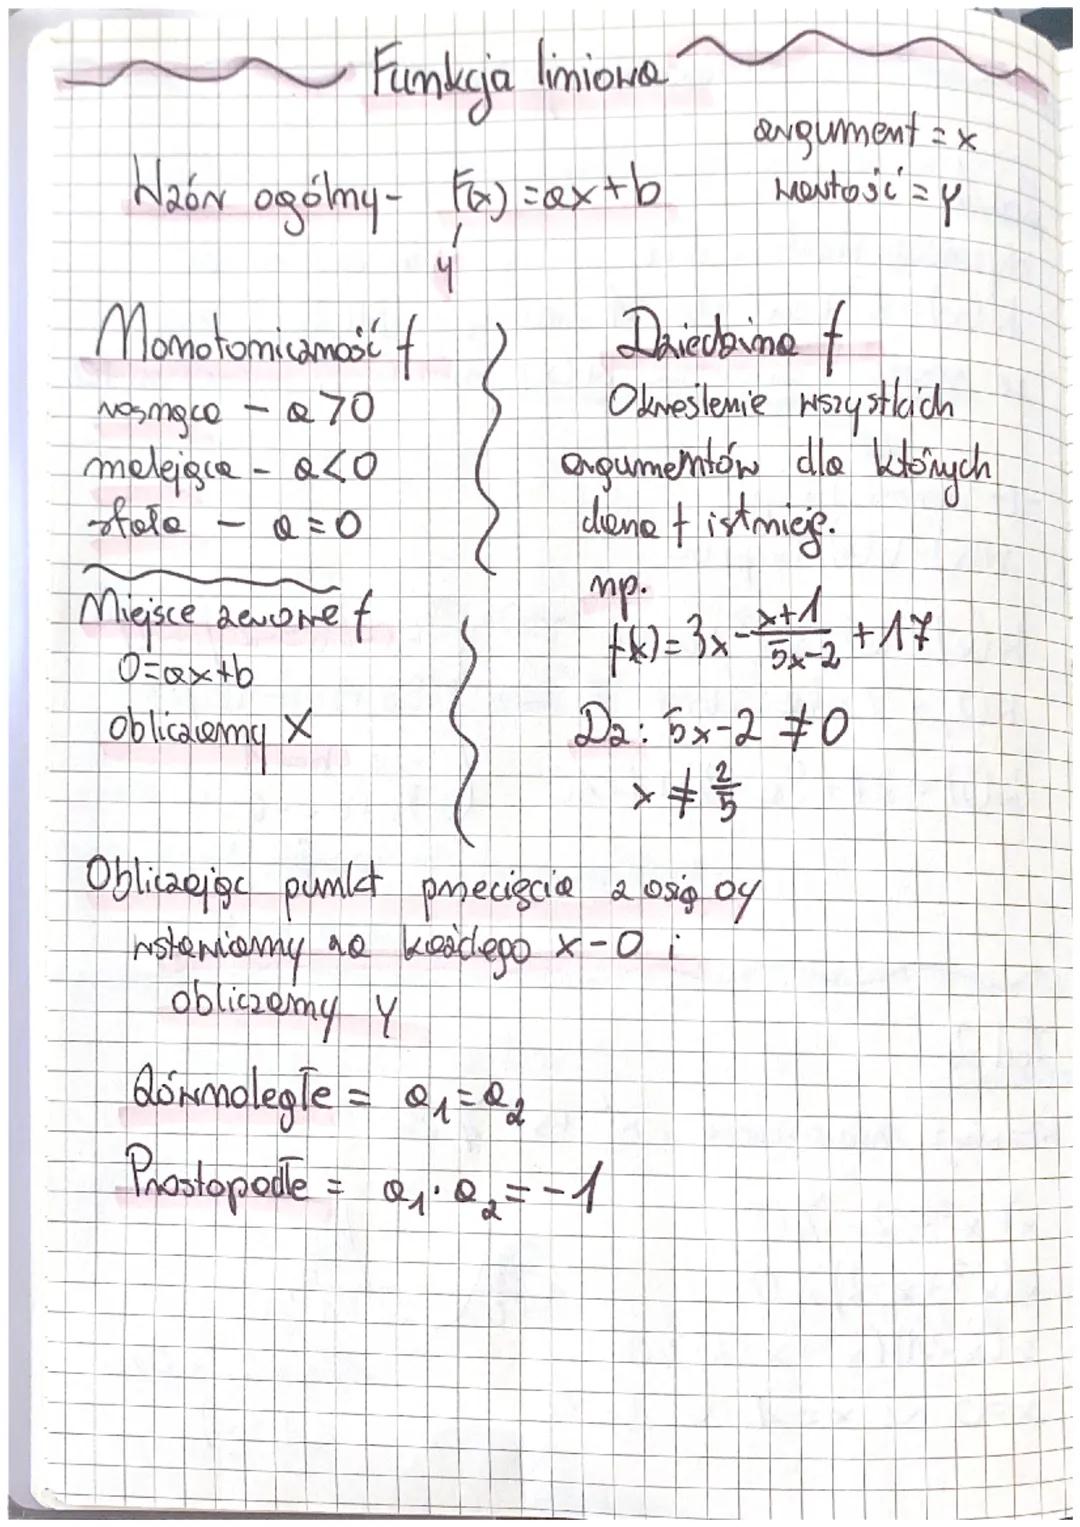 Funkcja liniowa
argument = x
wartość = y
Wzór ogólny - F(x) = ax + b
y
Monotoniczność f
rosnąca - a > 0
malejąca - a < 0
stała - a = 0
Miejsce zerowe f
0 = ax + b
obliczamy x
Dziedzina f
Określenie wszystkich
argumentów dla których
dana f istnieje.
np.
f(x) = 3x - \frac{x+1}{5x-2} + 17
Dz: 5x - 2 ≠ 0
x ≠ \frac{2}{5}
Obliczając punkt przecięcia z osią oy
wstawiamy za każdego x - 0 i
obliczamy y
Równoległe = a₁ = a₂
Prostopadłe = a₁ · a₂ = -1